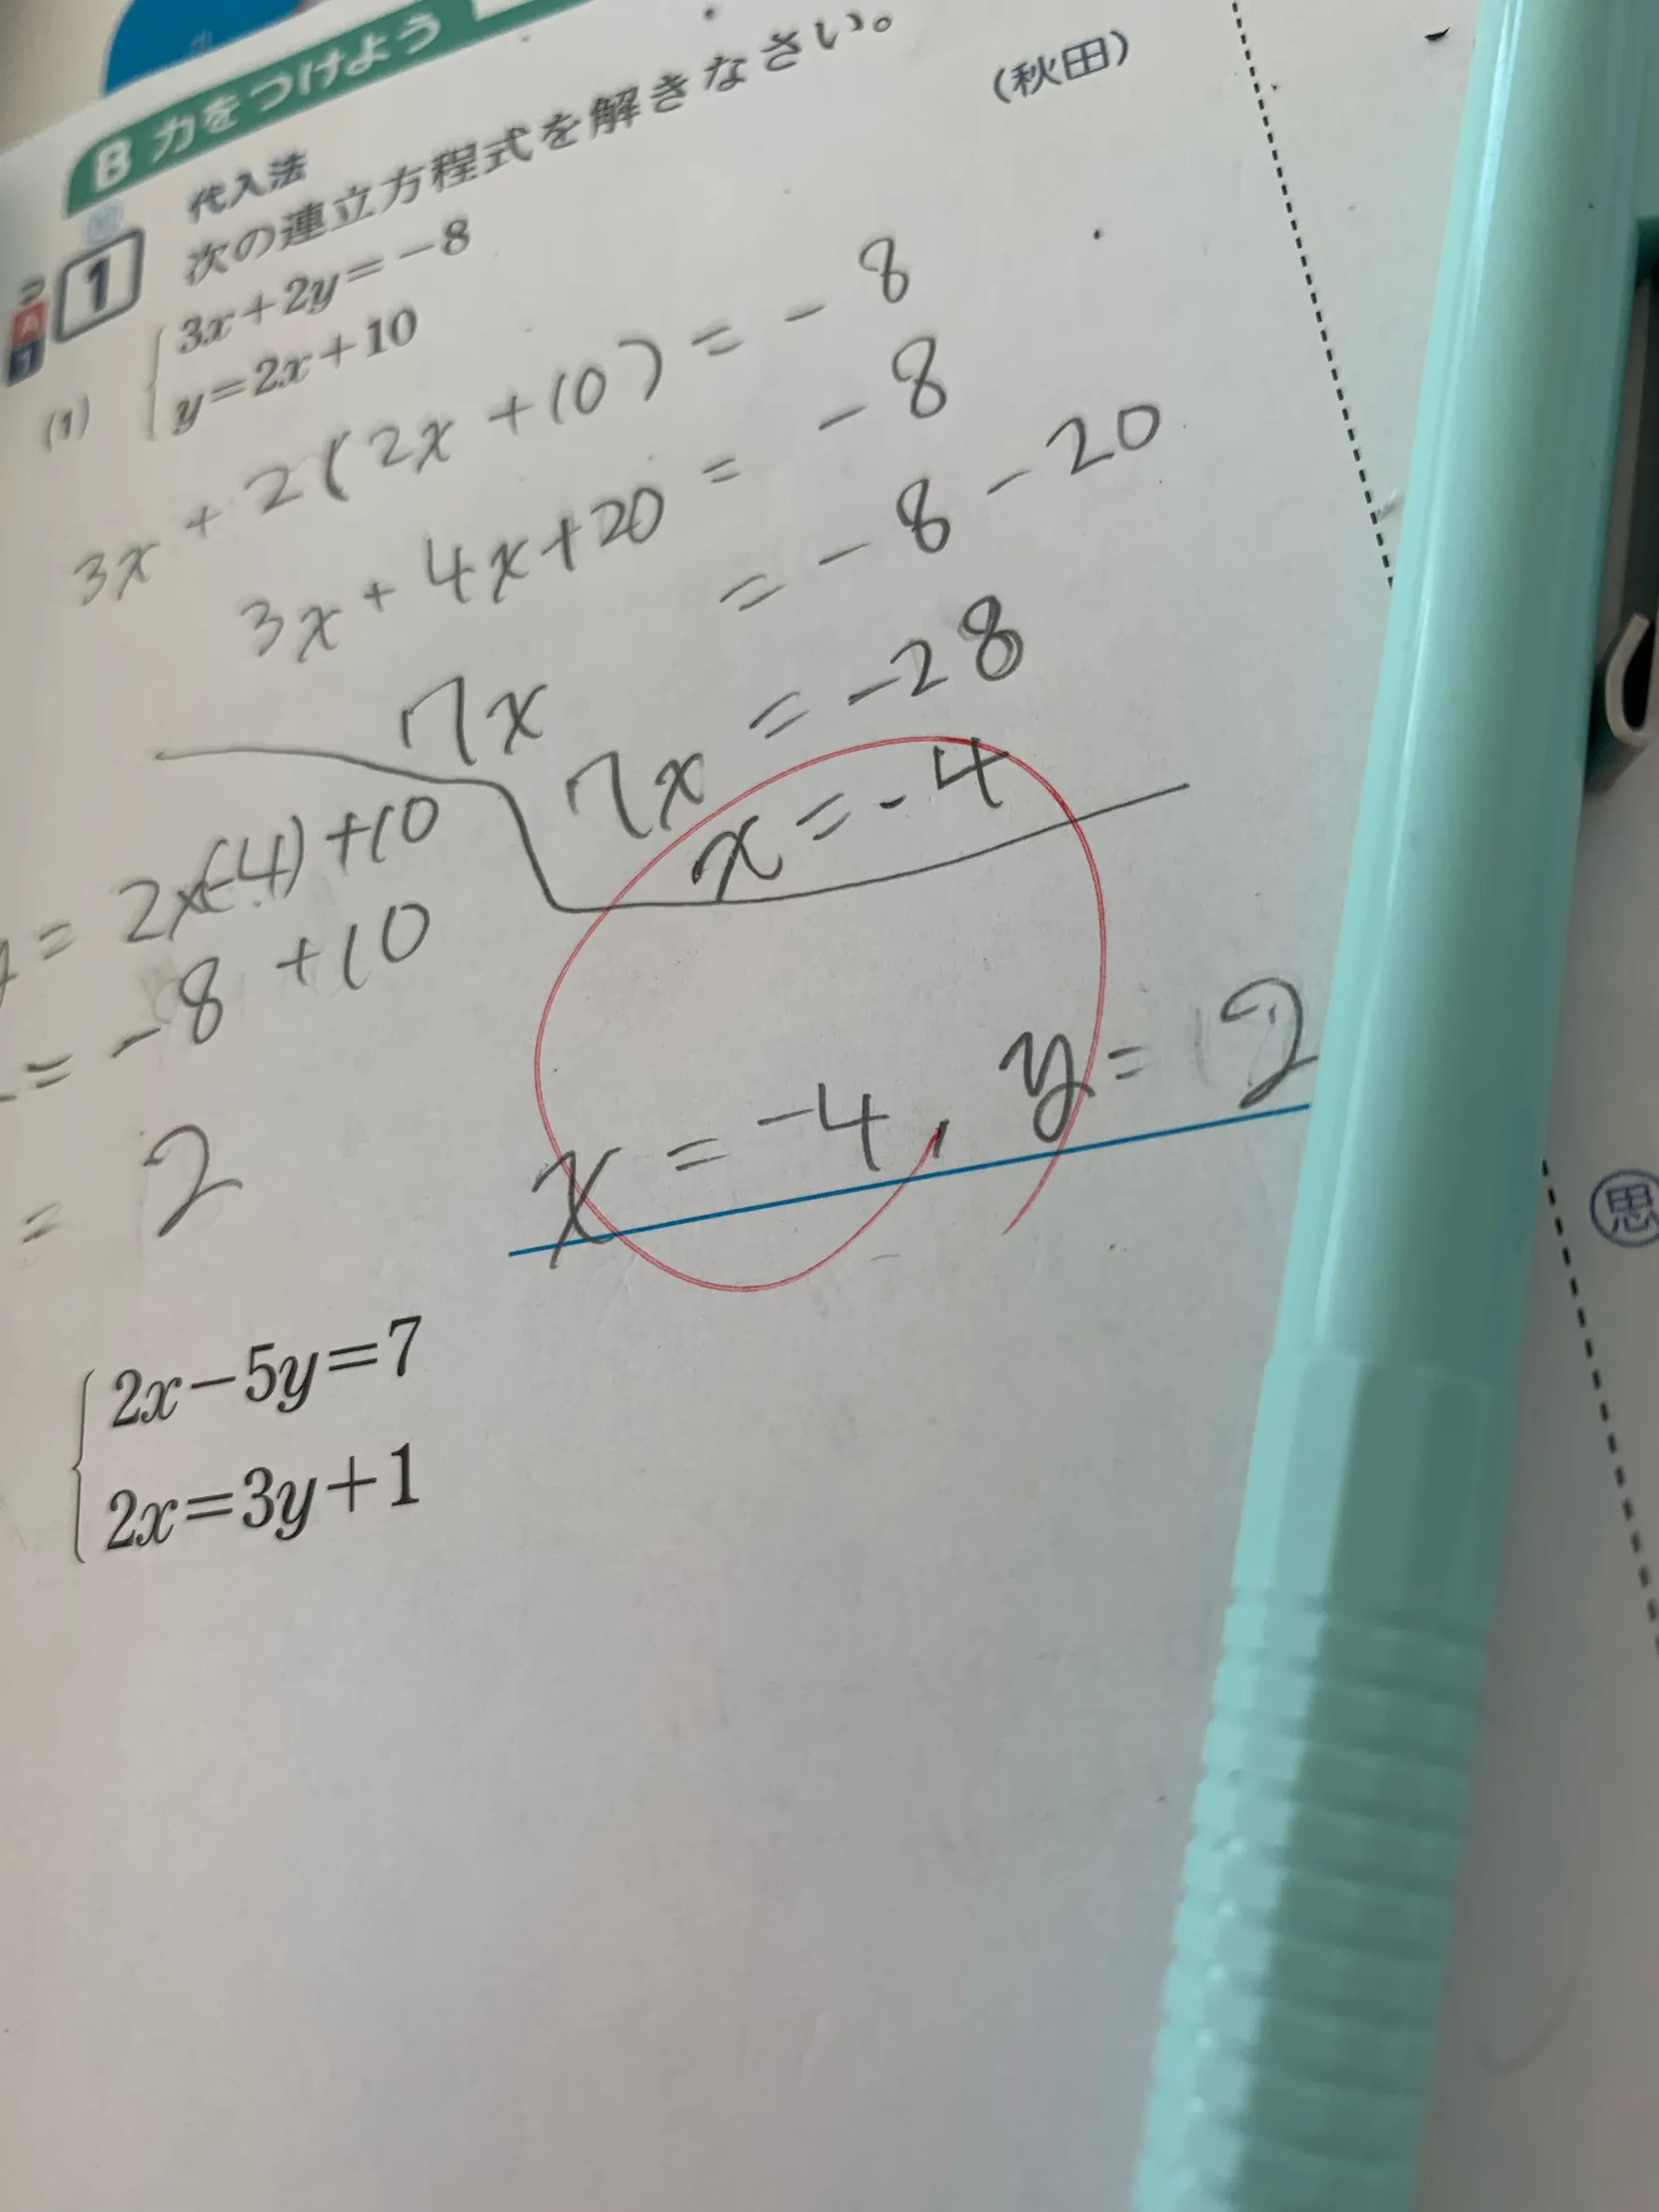 B 力をつけよう
代入法
1 次の連立方程式を解きなさい。
(1) 3x+2y=-8
y=2x+10
(秋田)
3x + 2(2x + 10) = - 8
3x + 4x + 20 = - 8
7x = - 8 - 20
7x = - 28
x = - 4
= 2×(-4) + 10
= - 8 + 10
= 2
x = -4, y = 2
2x-5y=7
2x=3y+1
思